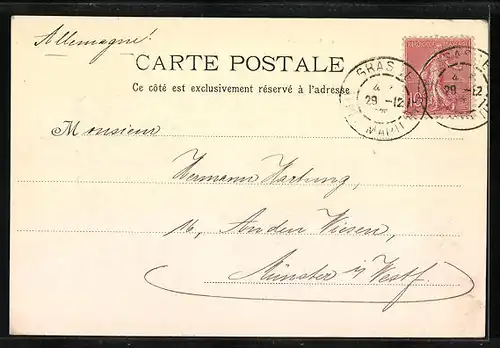 Allemagne!
CARTE POSTALE
Ce côté est exclusivement réservé à l'adresse
Monsieur
Hermann Hartung,
16, An den Wiesen,
Münster i/ Westf
GRASSE
4
29 -12
ALP. MARIT
GRASSE
4
29 -12